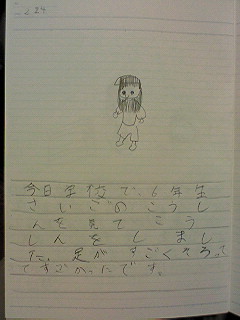 2 24
今日全校で、6年生
さいごのこうし
んを見てこう
しんをしまし
た。足がすごくそろって
てすごかったです。